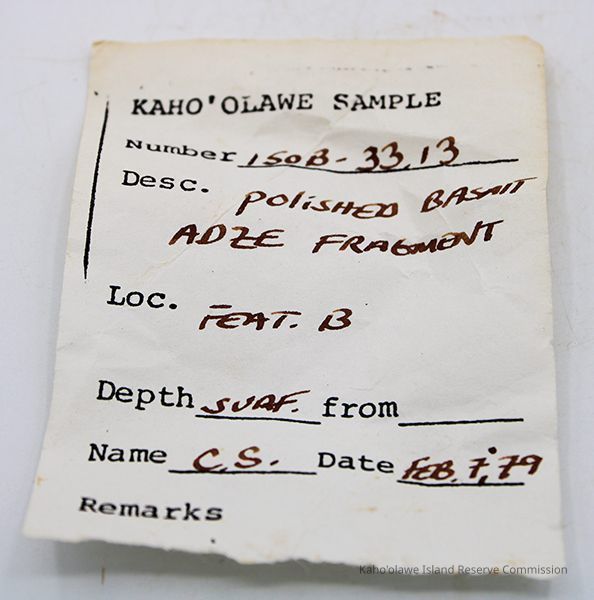 KAHO'OLAWE SAMPLE
Number 150B-33,13
Desc. POLISHED BASALT
ADZE FRAGMENT
Loc. FEAT. B
Depth SURF. from
Name C.S. Date FEB. 7, '79
Remarks
Kaho'olawe Island Reserve Commission